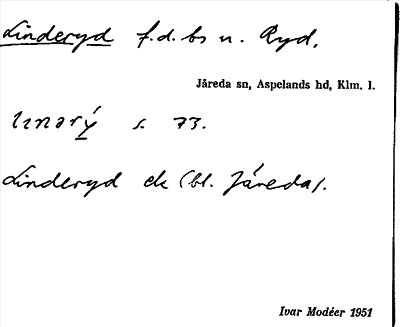 Linderyd f.d. bs u. Ryd.
Järeda sn, Aspelands hd, Klm. l.
s. 73.
Linderyd ek (bl. Järeda).
Ivar Modéer 1951